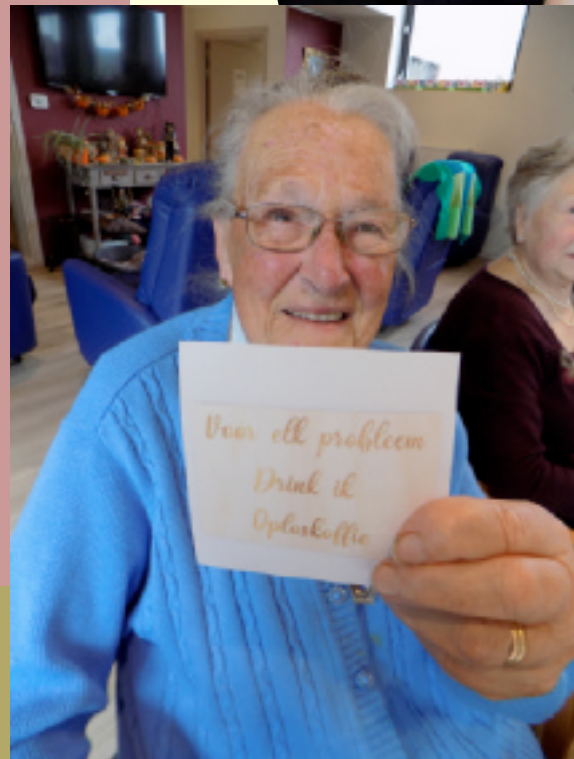 Voor elk probleem
Drink ik
Oploskoffie